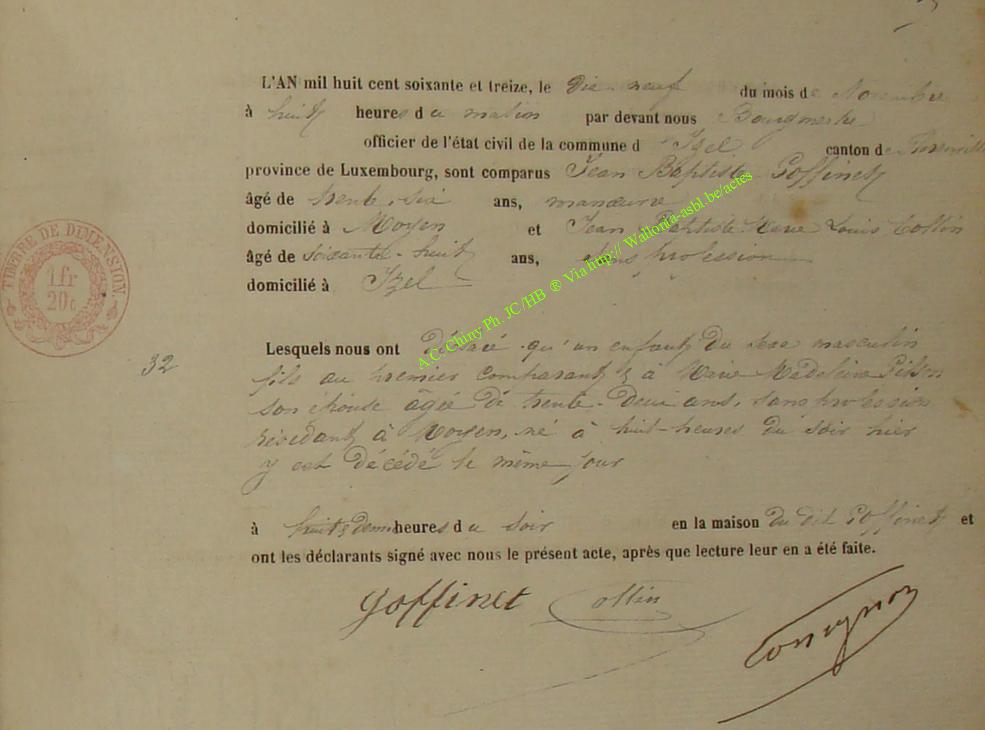 L'AN mil huit cent soixante et treize, le dix-neuf du mois de Novembre
à huit heures du matin par devant nous Bourgmestre
officier de l'état civil de la commune d'Izel canton de Florenville
province de Luxembourg, sont comparus Jean Baptiste Goffinet
âgé de trente-six ans, manœuvre
domicilié à Moyen et Jean Baptiste Marie Louis Collin
âgé de soixante-huit ans, sans profession
domicilié à Izel
TIMBRE DE DIMENSION.
1 fr
20 c
32
Lesquels nous ont déclaré qu'un enfant du sexe masculin
fils du premier comparant & à Marie Madeleine
son épouse âgée de trente-deux ans, sans profession
résidant à Moyen, né à huit-heures du soir hier
y est décédé le même jour
à huit & demi heures du soir en la maison du dit Goffinet et
ont les déclarants signé avec nous le présent acte, après que lecture leur en a été faite.
Goffinet Collin
A.C. Chiny Ph. JC/HB ® Via http:// Wallonia-asbl.be/actes